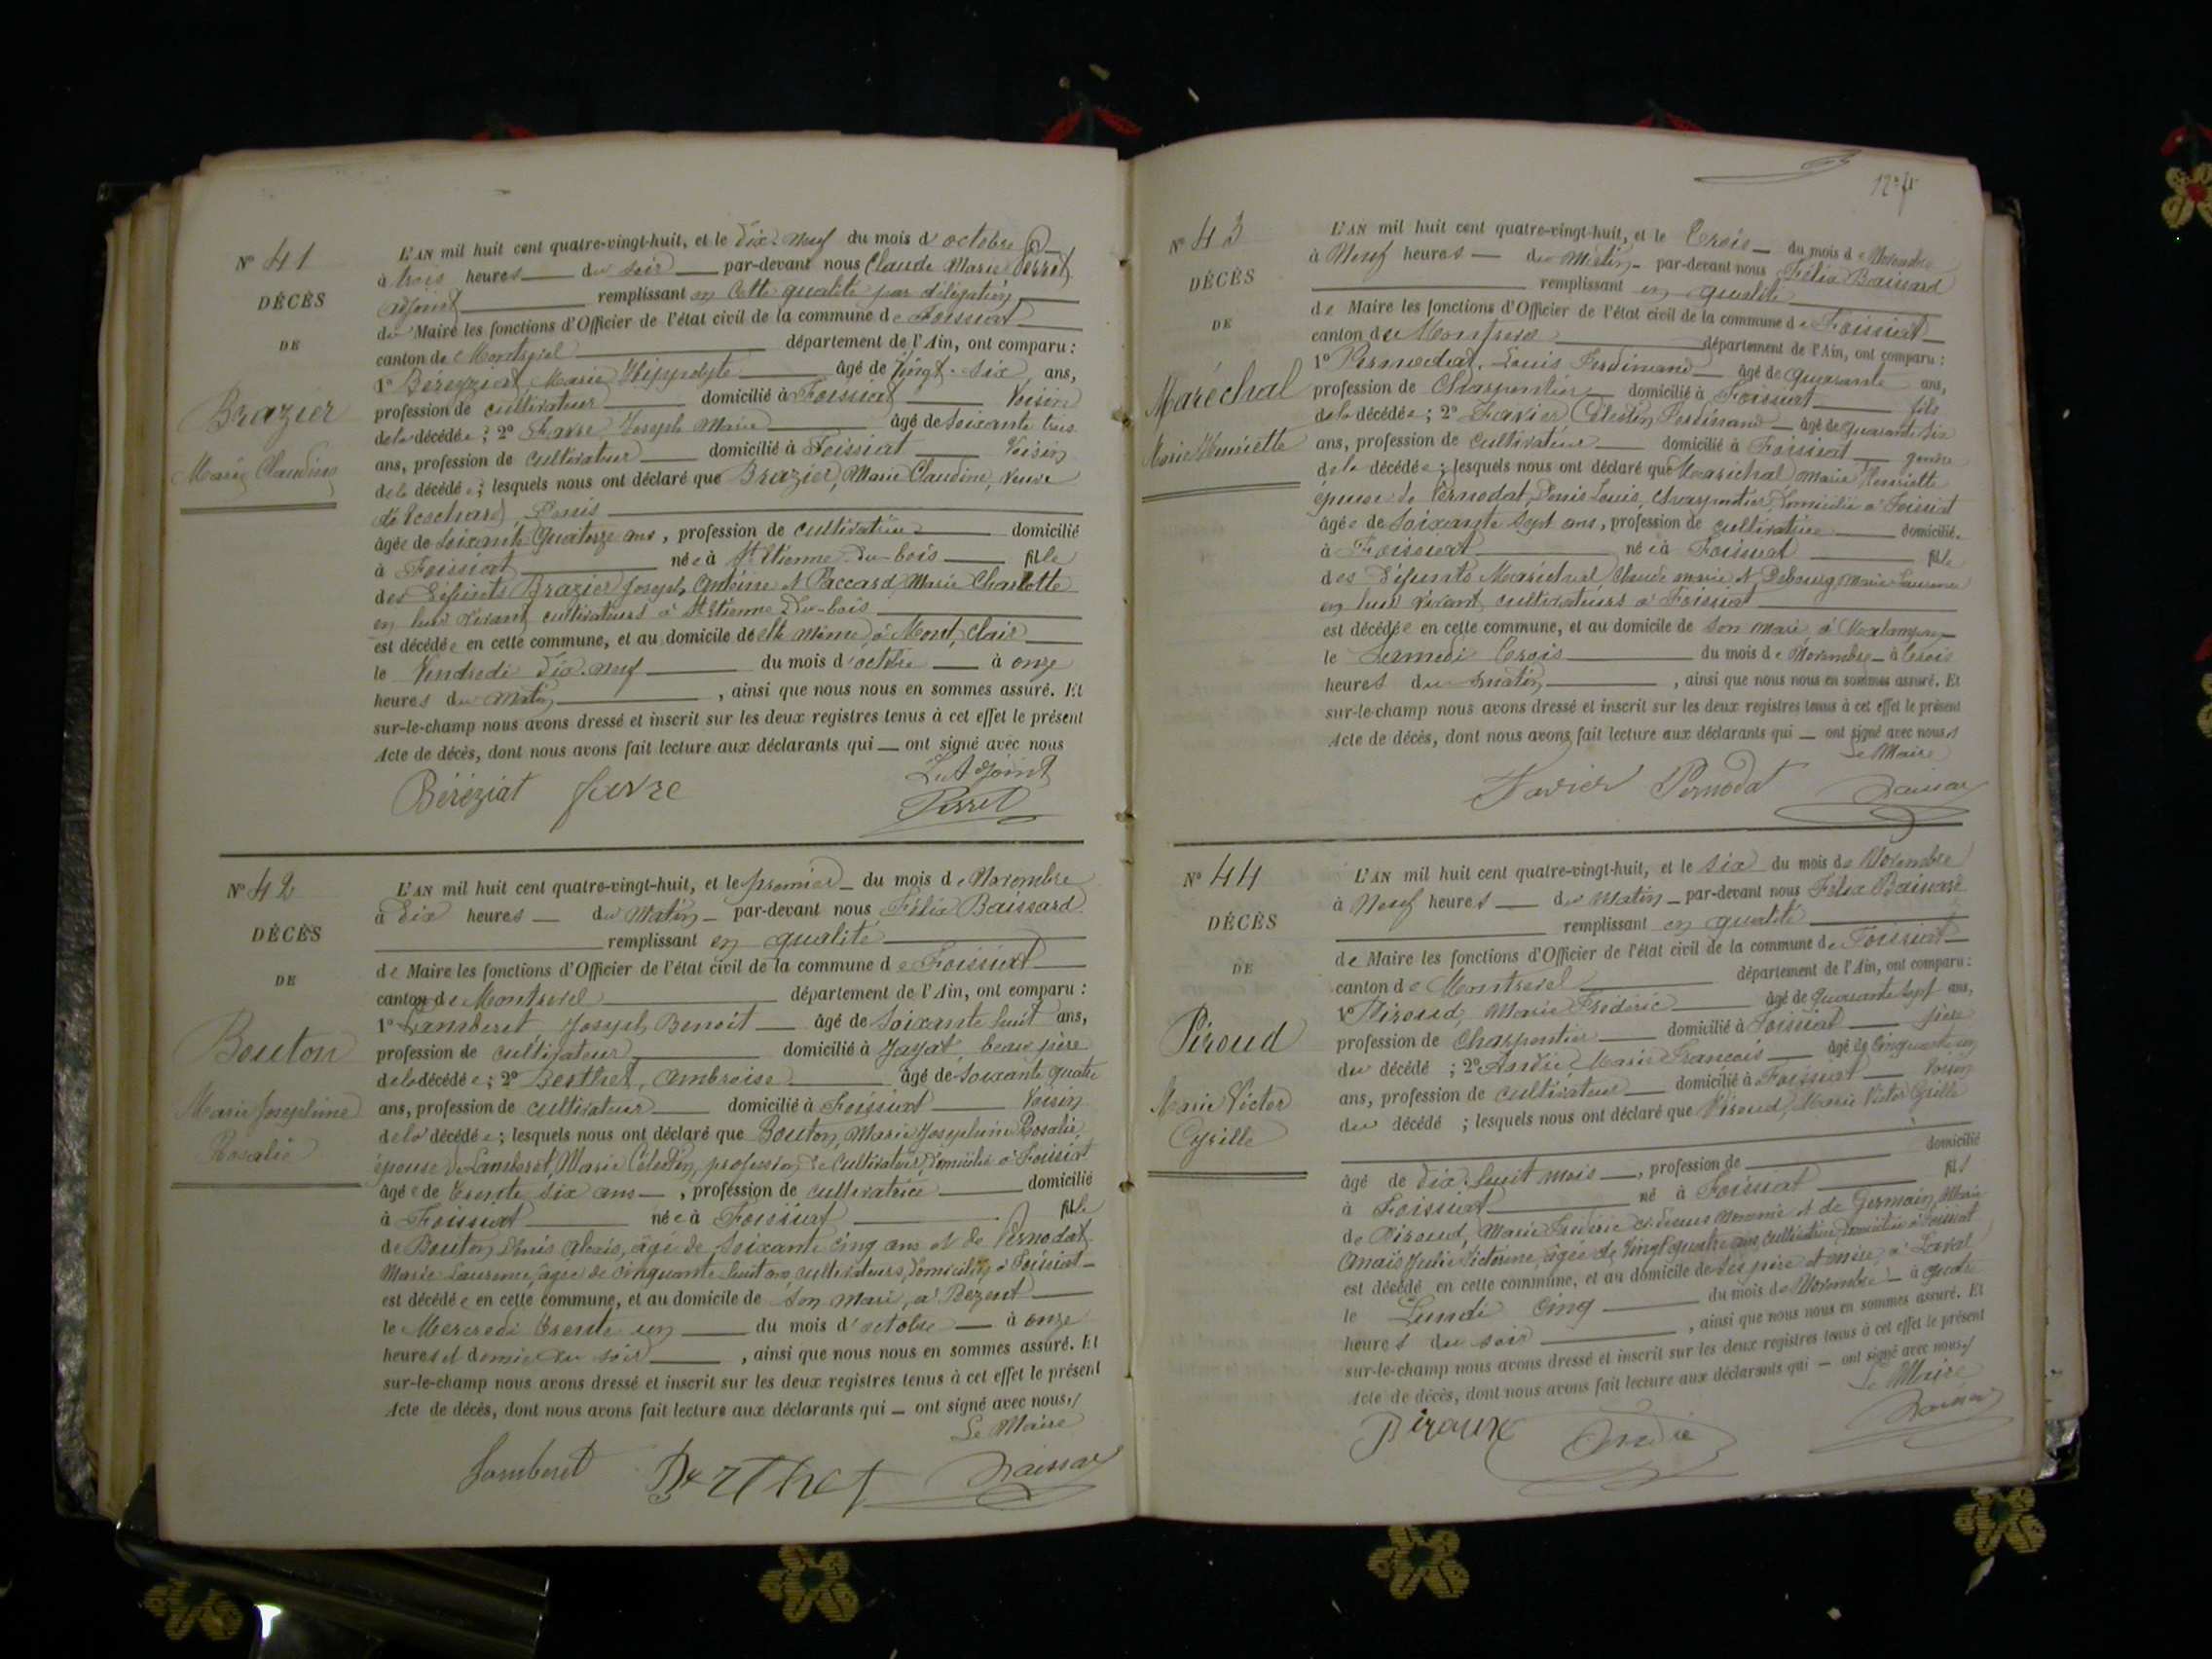 N° 41
DÉCÈS
DE
Brazier
Marie Claudine
L'AN mil huit cent quatre-vingt-huit, et le dix-neuf du mois d'octobre
à trois heures du soir par-devant nous Claude Marie Perret
adjoint remplissant en cette qualité par délégation
du Maire les fonctions d'Officier de l'état civil de la commune de Foissiat
canton de Montrevel département de l'Ain, ont comparu :
1° Béréziat, Marie Hippolyte âgé de vingt-six ans,
profession de cultivateur domicilié à Foissiat voisin
de la décédée ; 2° Favre Joseph Marie âgé de soixante trois
ans, profession de cultivateur domicilié à Foissiat voisin
de la décédée ; lesquels nous ont déclaré que Brazier, Marie Claudine, veuve
de Denis
âgée de soixante quatorze ans, profession de cultivatrice domicilié
à Foissiat née à St Etienne du-bois fille
des défunts Brazier Joseph Antoine et Paccard Marie Charlotte
en leur vivant cultivateurs à St Etienne du-bois
est décédée en cette commune, et au domicile de elle même, à Mont, Clair
le Vendredi dix-neuf du mois d'octobre à onze
heures du matin, ainsi que nous nous en sommes assuré. Et
sur-le-champ nous avons dressé et inscrit sur les deux registres tenus à cet effet le présent
Acte de décès, dont nous avons fait lecture aux déclarants qui ont signé avec nous
L'Adjoint
Béréziat favre Perret
N° 42
DÉCÈS
DE
Bouton
Marie Josephine
Rosalie
L'AN mil huit cent quatre-vingt-huit, et le premier du mois de Novembre
à dix heures du Matin par-devant nous Félix Baissard
remplissant en qualité
de Maire les fonctions d'Officier de l'état civil de la commune de Foissiat
canton de Montrevel département de l'Ain, ont comparu :
1° Lamberet Joseph Benoit âgé de soixante huit ans,
profession de cultivateur domicilié à Jayat, beau père
de la décédée ; 2° Berthet, Ambroise âgé de soixante quatre
ans, profession de cultivateur domicilié à Foissiat voisin
de la décédée ; lesquels nous ont déclaré que Bouton, Marie Josephine Rosalie,
épouse de Lamberet, Marie Célestin, profession de cultivateur, domiciliée à Foissiat
âgée de trente six ans, profession de cultivatrice domicilié
à Foissiat née à Foissiat fille
de Bouton Denis Alexis, âgé de soixante cinq ans et de Pernodat
Marie Laurence, âgée de cinquante huit ans, cultivateurs, domiciliés à Foissiat
est décédée en cette commune, et au domicile de son mari, à Bezent
le Mercredi trente un du mois d'octobre à onze
heures et demie du soir, ainsi que nous nous en sommes assuré. Et
sur-le-champ nous avons dressé et inscrit sur les deux registres tenus à cet effet le présent
Acte de décès, dont nous avons fait lecture aux déclarants qui ont signé avec nous
Le Maire
Lamberet Berthet Baissard
N° 43
DÉCÈS
DE
Maréchal
Marie Henriette
L'AN mil huit cent quatre-vingt-huit, et le trois du mois de Novembre
à Neuf heures du Matin par-devant nous Félix Baissard
remplissant en qualité
de Maire les fonctions d'Officier de l'état civil de la commune de Foissiat
canton de Montrevel département de l'Ain, ont comparu :
1° Pernodat, Louis Ferdinand âgé de quarante ans,
profession de Charpentier domicilié à Foissiat fils
de la décédée ; 2° Favier Célestin Ferdinand âgé de quarante six
ans, profession de cultivateur domicilié à Foissiat gendre
de la décédée ; lesquels nous ont déclaré que Maréchal Marie Henriette
épouse de Pernodat, Denis Louis, charpentier, domiciliée à Foissiat
âgée de soixante sept ans, profession de cultivatrice domicilié
à Foissiat née à Foissiat fille
des défunts Maréchal Claude Marie et Debourg Marie Laurence
en leur vivant cultivateurs à Foissiat
est décédée en cette commune, et au domicile de son mari, à
le Samedi trois du mois de Novembre à trois
heures du matin, ainsi que nous nous en sommes assuré. Et
sur-le-champ nous avons dressé et inscrit sur les deux registres tenus à cet effet le présent
Acte de décès, dont nous avons fait lecture aux déclarants qui ont signé avec nous
Le Maire
Favier Pernodat Baissard
N° 44
DÉCÈS
DE
Piroud
Marie Victor
Cyrille
L'AN mil huit cent quatre-vingt-huit, et le six du mois de Novembre
à Neuf heures du Matin par-devant nous Félix Baissard
remplissant en qualité
de Maire les fonctions d'Officier de l'état civil de la commune de Foissiat
canton de Montrevel département de l'Ain, ont comparu :
1° Piroud, Marie Frédéric âgé de quarante sept ans,
profession de Charpentier domicilié à Foissiat père
du décédé ; 2° André, Marie François âgé de cinquante un
ans, profession de cultivateur domicilié à Foissiat voisin
du décédé ; lesquels nous ont déclaré que Piroud, Marie Victor Cyrille
âgé de dix huit mois, profession de domicilié
à Foissiat né à Foissiat fils
de Piroud, Marie Frédéric ci-dessus nommé et de Germain Marie
Anaïs Julie Victorine, âgée de vingt quatre ans, cultivatrice, domiciliée à Foissiat
est décédé en cette commune, et au domicile de ses père et mère, à Laval
le Lundi cinq du mois de Novembre à quatre
heures du soir, ainsi que nous nous en sommes assuré. Et
sur-le-champ nous avons dressé et inscrit sur les deux registres tenus à cet effet le présent
Acte de décès, dont nous avons fait lecture aux déclarants qui ont signé avec nous
Le Maire
Piroux André Baissard